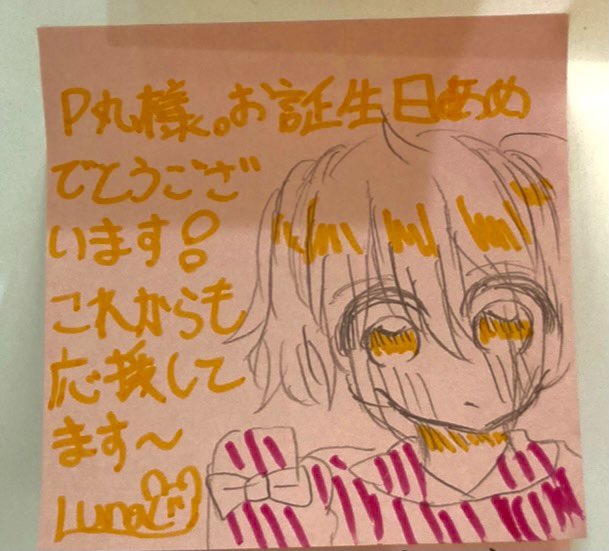 P丸様。お誕生日おめ
でとうござ
います!
これからも
応援して
ます〜
Luna